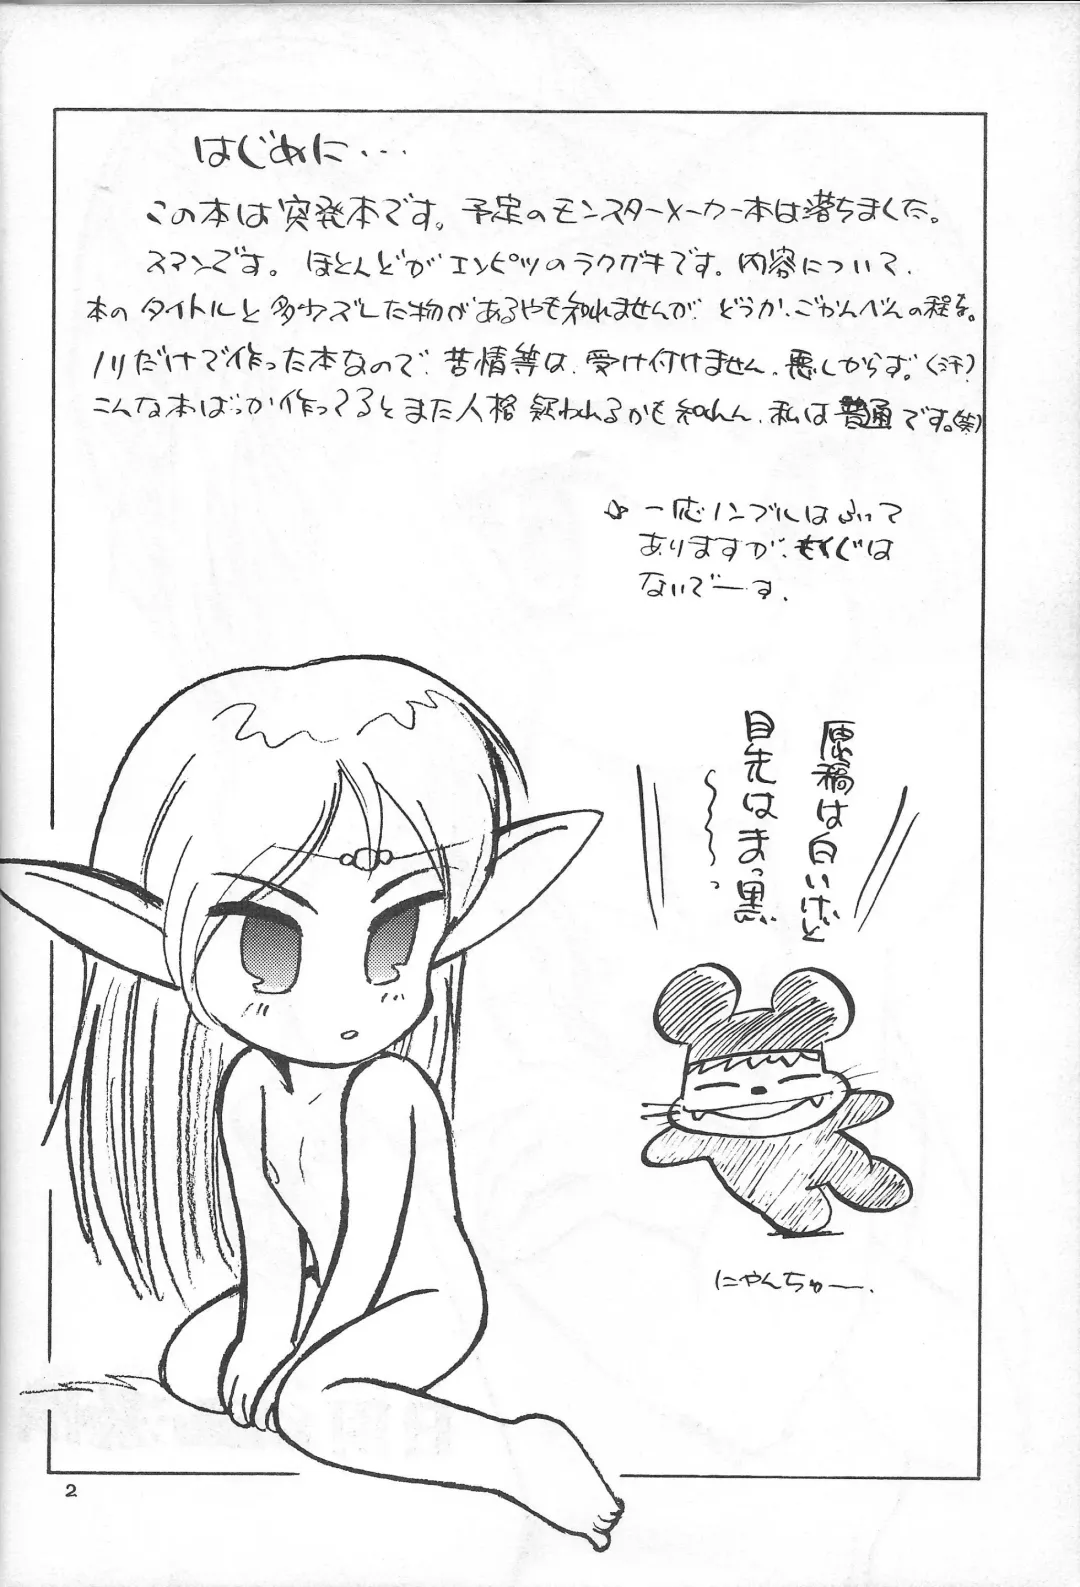 はじめに・・・
この本は突発本です。予定のモンスターメーカー本は落ちました。
スマンです。ほとんどがエンピツのラクガキです。内容について、
本のタイトルと多少ズレした物があるやも知れませんが、どうか、ごかんべんの程を。
ノリだけで作った本なので、苦情等は、受け付けません、悪しからず。(汗)
こんな本ばっか作ってるとまた人格疑われるかも知れん、私は普通です。(笑)
一応ノンブルはふって
ありますが、もくじは
ないでーす。
原稿は白いけど
目先はまっ黒
にゃんちゅー.
2